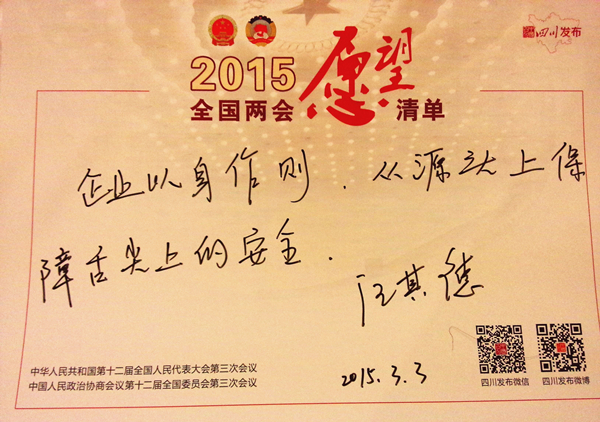 四川发布
2015愿望
全国两会 清单
企业以身作则，从源头上保
障舌尖上的安全．
汪其德
中华人民共和国第十二届全国人民代表大会第三次会议
中国人民政治协商会议第十二届全国委员会第三次会议
2015.3.3
四川发布微信
四川发布微博